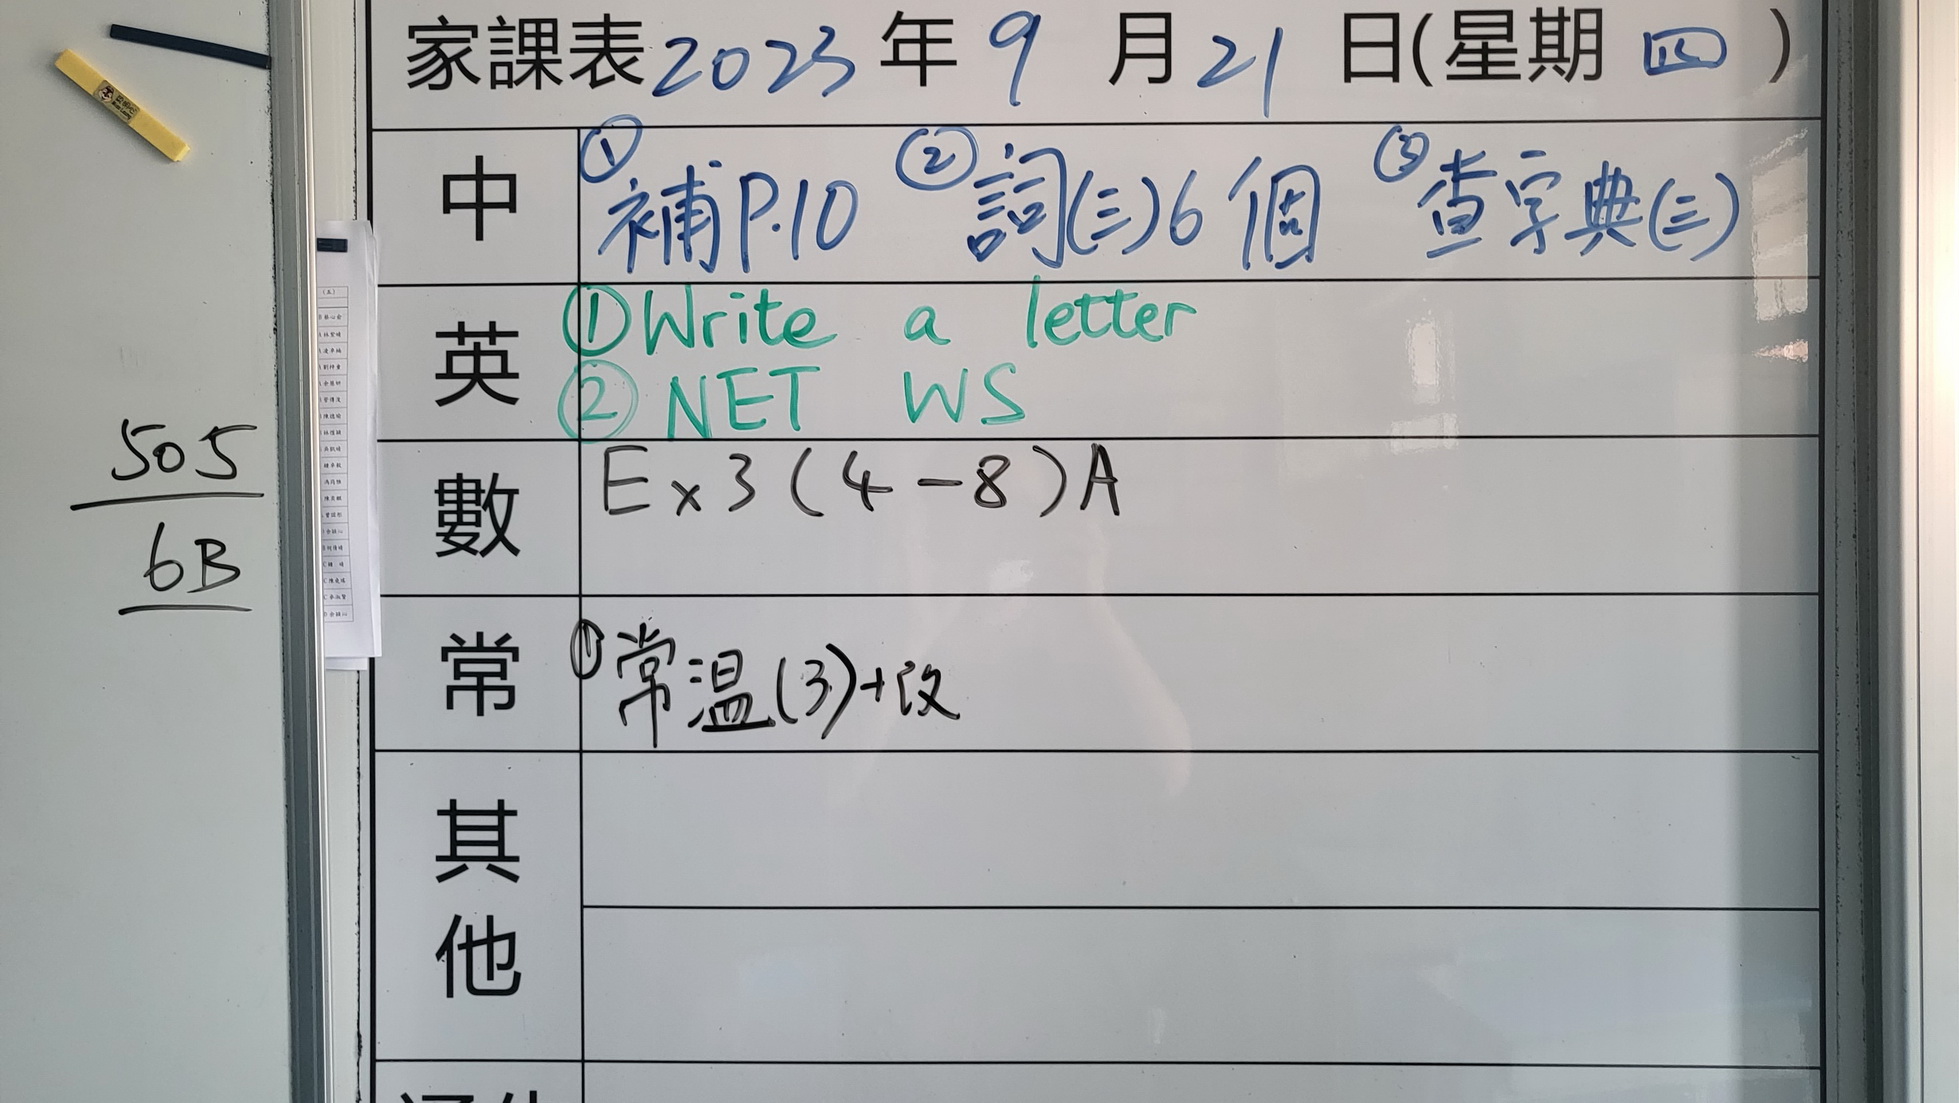 家課表 2023 年 9 月 21 日(星期 四 )
中 ① 補P.10 ② 詞(三)6個 ③ 查字典(三)
英 ① Write a letter
② NET WS
數 Ex 3 (4-8) A
常 ① 常温(3)+改
其他
505
6B